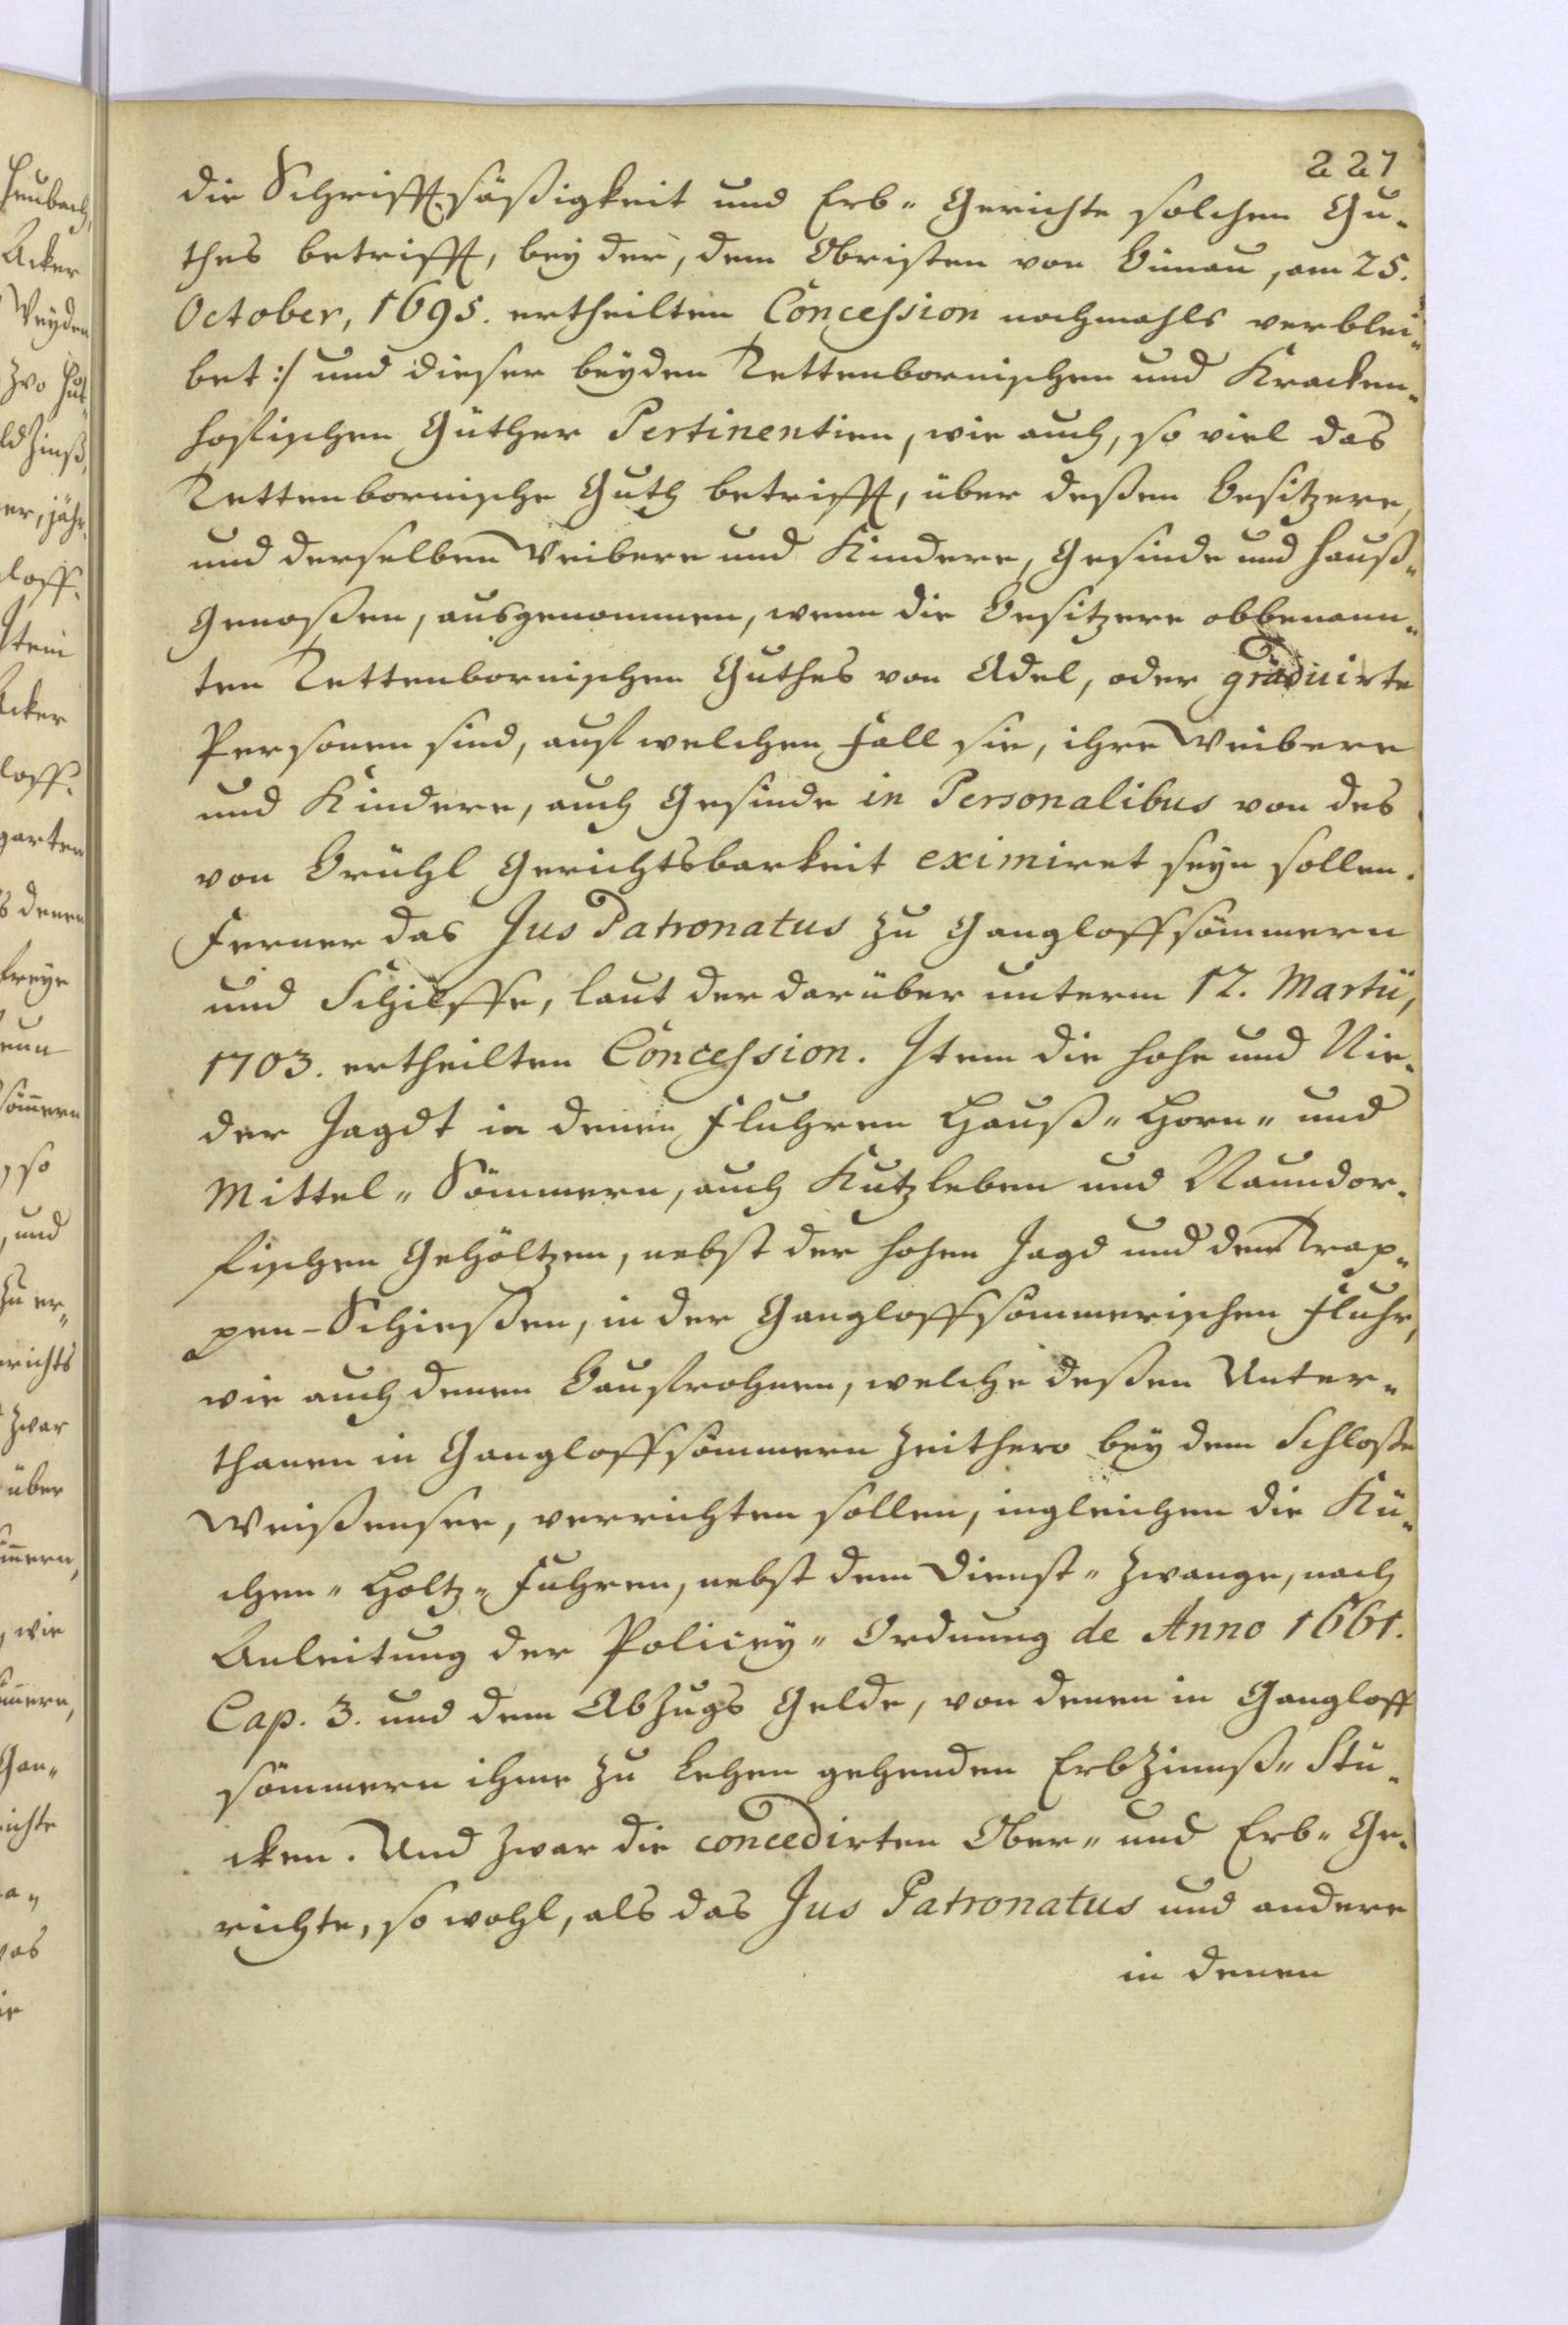 227
die Schrifftsäßigkeit und Erb- Gerichte solchen Gu-
thes betrifft, bey der, dem Obristen von Bünau, am 25.
October, 1695. ertheilten Concession nochmahls verblei-
bet :/ und dieser beyden Kettenbornischen und Kracken-
hofischen Güther Pertinentien, wie auch, so viel das
Kettenbornische Guth betrifft, über deßen Besitzere,
und derselben Weibere und Kindere, Gesinde und Hauß-
Genoßen, ausgenommen, wenn die Besitzere obbenann-
ten Kettenbornischen Guthes von Adel, oder graduirte
Personen sind, auf welchen Fall sie, ihre Weibere
und Kindere, auch Gesinde in Personalibus von des
von Brühl Gerichtsbarkeit eximiret seyn sollen.
Ferner das Jus Patronatus zu Gangloffsömmern
und Schilffe, laut der darüber unterm 12. Martii,
1703. ertheilten Concession. Item die hohe und Nie-
der Jagdt in denen Fluhren Hauß- Horn- und
Mittel- Sömmern, auch Kutzleben und Naundor-
fischen Gehöltzen, nebst der hohen Jagd und dem Trap-
pen-Schießen, in der Gangloffsömmerischen Fluhr,
wie auch denen Baufrohnen, welche deßen Unter-
thanen in Gangloffsömmern zeithero bey dem Schloße
Weißensee, verrichten sollen, ingleichen die Kü-
chen- Holtz- Fuhren, nebst dem Dienst- Zwange, nach
Anleitung der Policey- Ordnung de Anno 1661.
Cap. 3. und dem Abzugs Gelde, von denen in Gangloff
sömmern ihme zu Lehen gehenden Erbzinnß- Stü-
cken. Und zwar die concedirten Ober- und Erb- Ge-
richte, so wohl, als das Jus Patronatus und andere
in denen